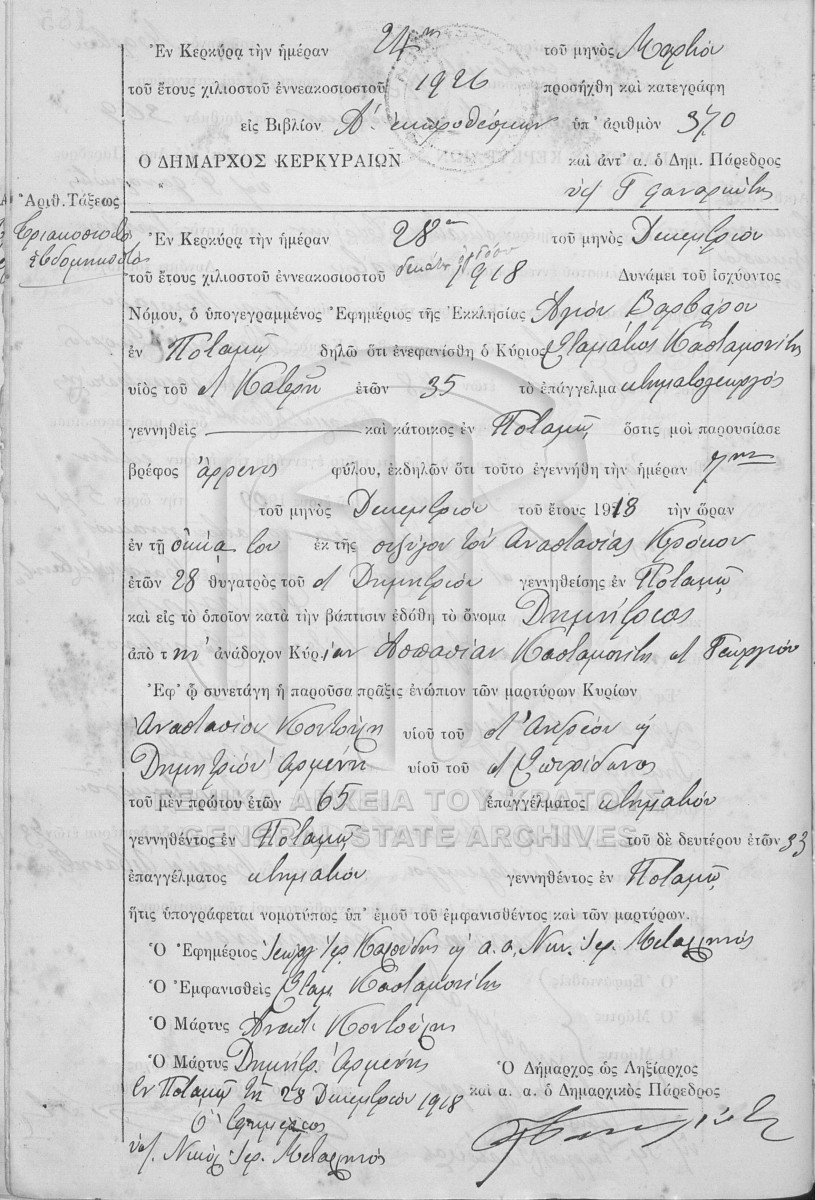 Ἐν Κερκύρᾳ τὴν ἡμέραν 24ην τοῦ μηνὸς Μαρτίου
τοῦ ἔτους χιλιοστοῦ ἐννεακοσιοστοῦ 1926 προσήχθη καὶ κατεγράφη
εἰς Βιβλίον Α. ἐκπροθέσμων ὑπ' ἀριθμὸν 370
Ὁ ΔΗΜΑΡΧΟΣ ΚΕΡΚΥΡΑΙΩΝ καὶ ἀντ' α. ὁ Δημ. Πάρεδρος
Ἀριθ. Τάξεως
Τριακοστὸς
Ἑβδομηκοστὸς
Ἐν Κερκύρᾳ τὴν ἡμέραν 28ην τοῦ μηνὸς Δεκεμβρίου
τοῦ ἔτους χιλιοστοῦ ἐννεακοσιοστοῦ δεκάτου ὀγδόου 1918 Δυνάμει τοῦ ἰσχύοντος
Νόμου, ὁ ὑπογεγραμμένος Ἐφημέριος τῆς Ἐκκλησίας Ἁγίου Βαρβάρου
ἐν Ποταμῷ δηλῶ ὅτι ἐνεφανίσθη ὁ Κύριος Σταμάτιος Κασταμονίτης
υἱὸς τοῦ ἐτῶν 35 τὸ ἐπάγγελμα κτηματογεωργὸς
γεννηθεὶς καὶ κάτοικος ἐν Ποταμῷ ὅστις μοὶ παρουσίασε
βρέφος ἄρρενος φύλου, ἐκδηλῶν ὅτι τοῦτο ἐγεννήθη τὴν ἡμέραν 7ην
τοῦ μηνὸς Δεκεμβρίου τοῦ ἔτους 1918 τὴν ὥραν
ἐν τῇ οἰκίᾳ του ἐκ τῆς συζύγου του Ἀναστασίας Κρόκου
ἐτῶν 28 θυγατρὸς τοῦ Δημητρίου γεννηθείσης ἐν Ποταμῷ
καὶ εἰς τὸ ὁποῖον κατὰ τὴν βάπτισιν ἐδόθη τὸ ὄνομα Δημήτριος
ἀπὸ τὴν ἀνάδοχον Κυρίαν Ἀσπασίαν Κασταμονίτη Γεωργίου
Ἐφ' ᾧ συνετάγη ἡ παροῦσα πρᾶξις ἐνώπιον τῶν μαρτύρων Κυρίων
Ἀναστασίου Κοντούλη υἱοῦ τοῦ Ἀνδρέου
Δημητρίου Ἀρμένη υἱοῦ τοῦ Σπυρίδωνος
τοῦ μὲν πρώτου ἐτῶν 65 ἐπαγγέλματος κτηματίου
ΓΕΝΙΚΑ ΑΡΧΕΙΑ ΤΟΥ ΚΡΑΤΟΥΣ
GENERAL STATE ARCHIVES
γεννηθέντος ἐν Ποταμῷ τοῦ δὲ δευτέρου ἐτῶν 33
ἐπαγγέλματος κτηματίου γεννηθέντος ἐν Ποταμῷ
ἥτις ὑπογράφεται νομοτύπως ὑπ' ἐμοῦ τοῦ ἐμφανισθέντος καὶ τῶν μαρτύρων.
Ὁ Ἐφημέριος Ἱερ. α.α. Νικ. Ἱερ. Μεταλληνὸς
Ὁ Ἐμφανισθεὶς Σταμ. Κασταμονίτης
Ὁ Μάρτυς Ἀναστ. Κοντούλης
Ὁ Μάρτυς Δημήτρ. Ἀρμένης Ὁ Δήμαρχος ὡς Ληξίαρχος
Ἐν Ποταμῷ τῇ 28 Δεκεμβρίου 1918 καὶ α. α. ὁ Δημαρχικὸς Πάρεδρος
Ὁ Ἐφημέριος
Νικόλ. Ἱερ. Μεταλληνὸς